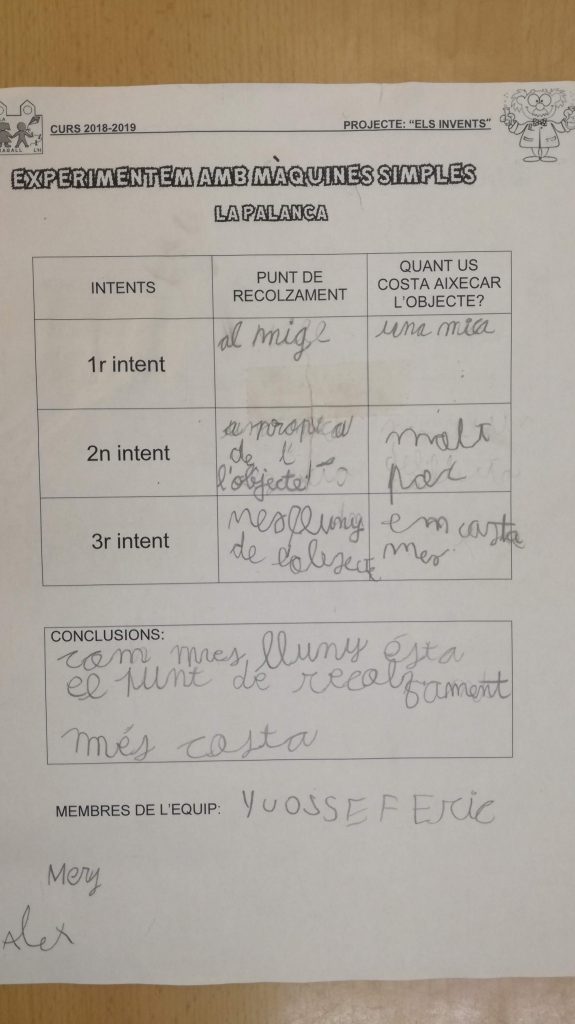 CURS 2018-2019
PROJECTE: "ELS INVENTS"
EXPERIMENTEM AMB MÀQUINES SIMPLES
LA PALANCA
INTENTS
PUNT DE
RECOLZAMENT
QUANT US
COSTA AIXECAR
L'OBJECTE?
1r intent
al mige
una mica
2n intent
de l'
l'objecte
molt
poc
3r intent
mes lluny
de
em costa
mes
CONCLUSIONS:
com mes lluny ésta
el punt de recolzament
més costa
MEMBRES DE L'EQUIP: YUOSSEF Eric
Mery
Alex